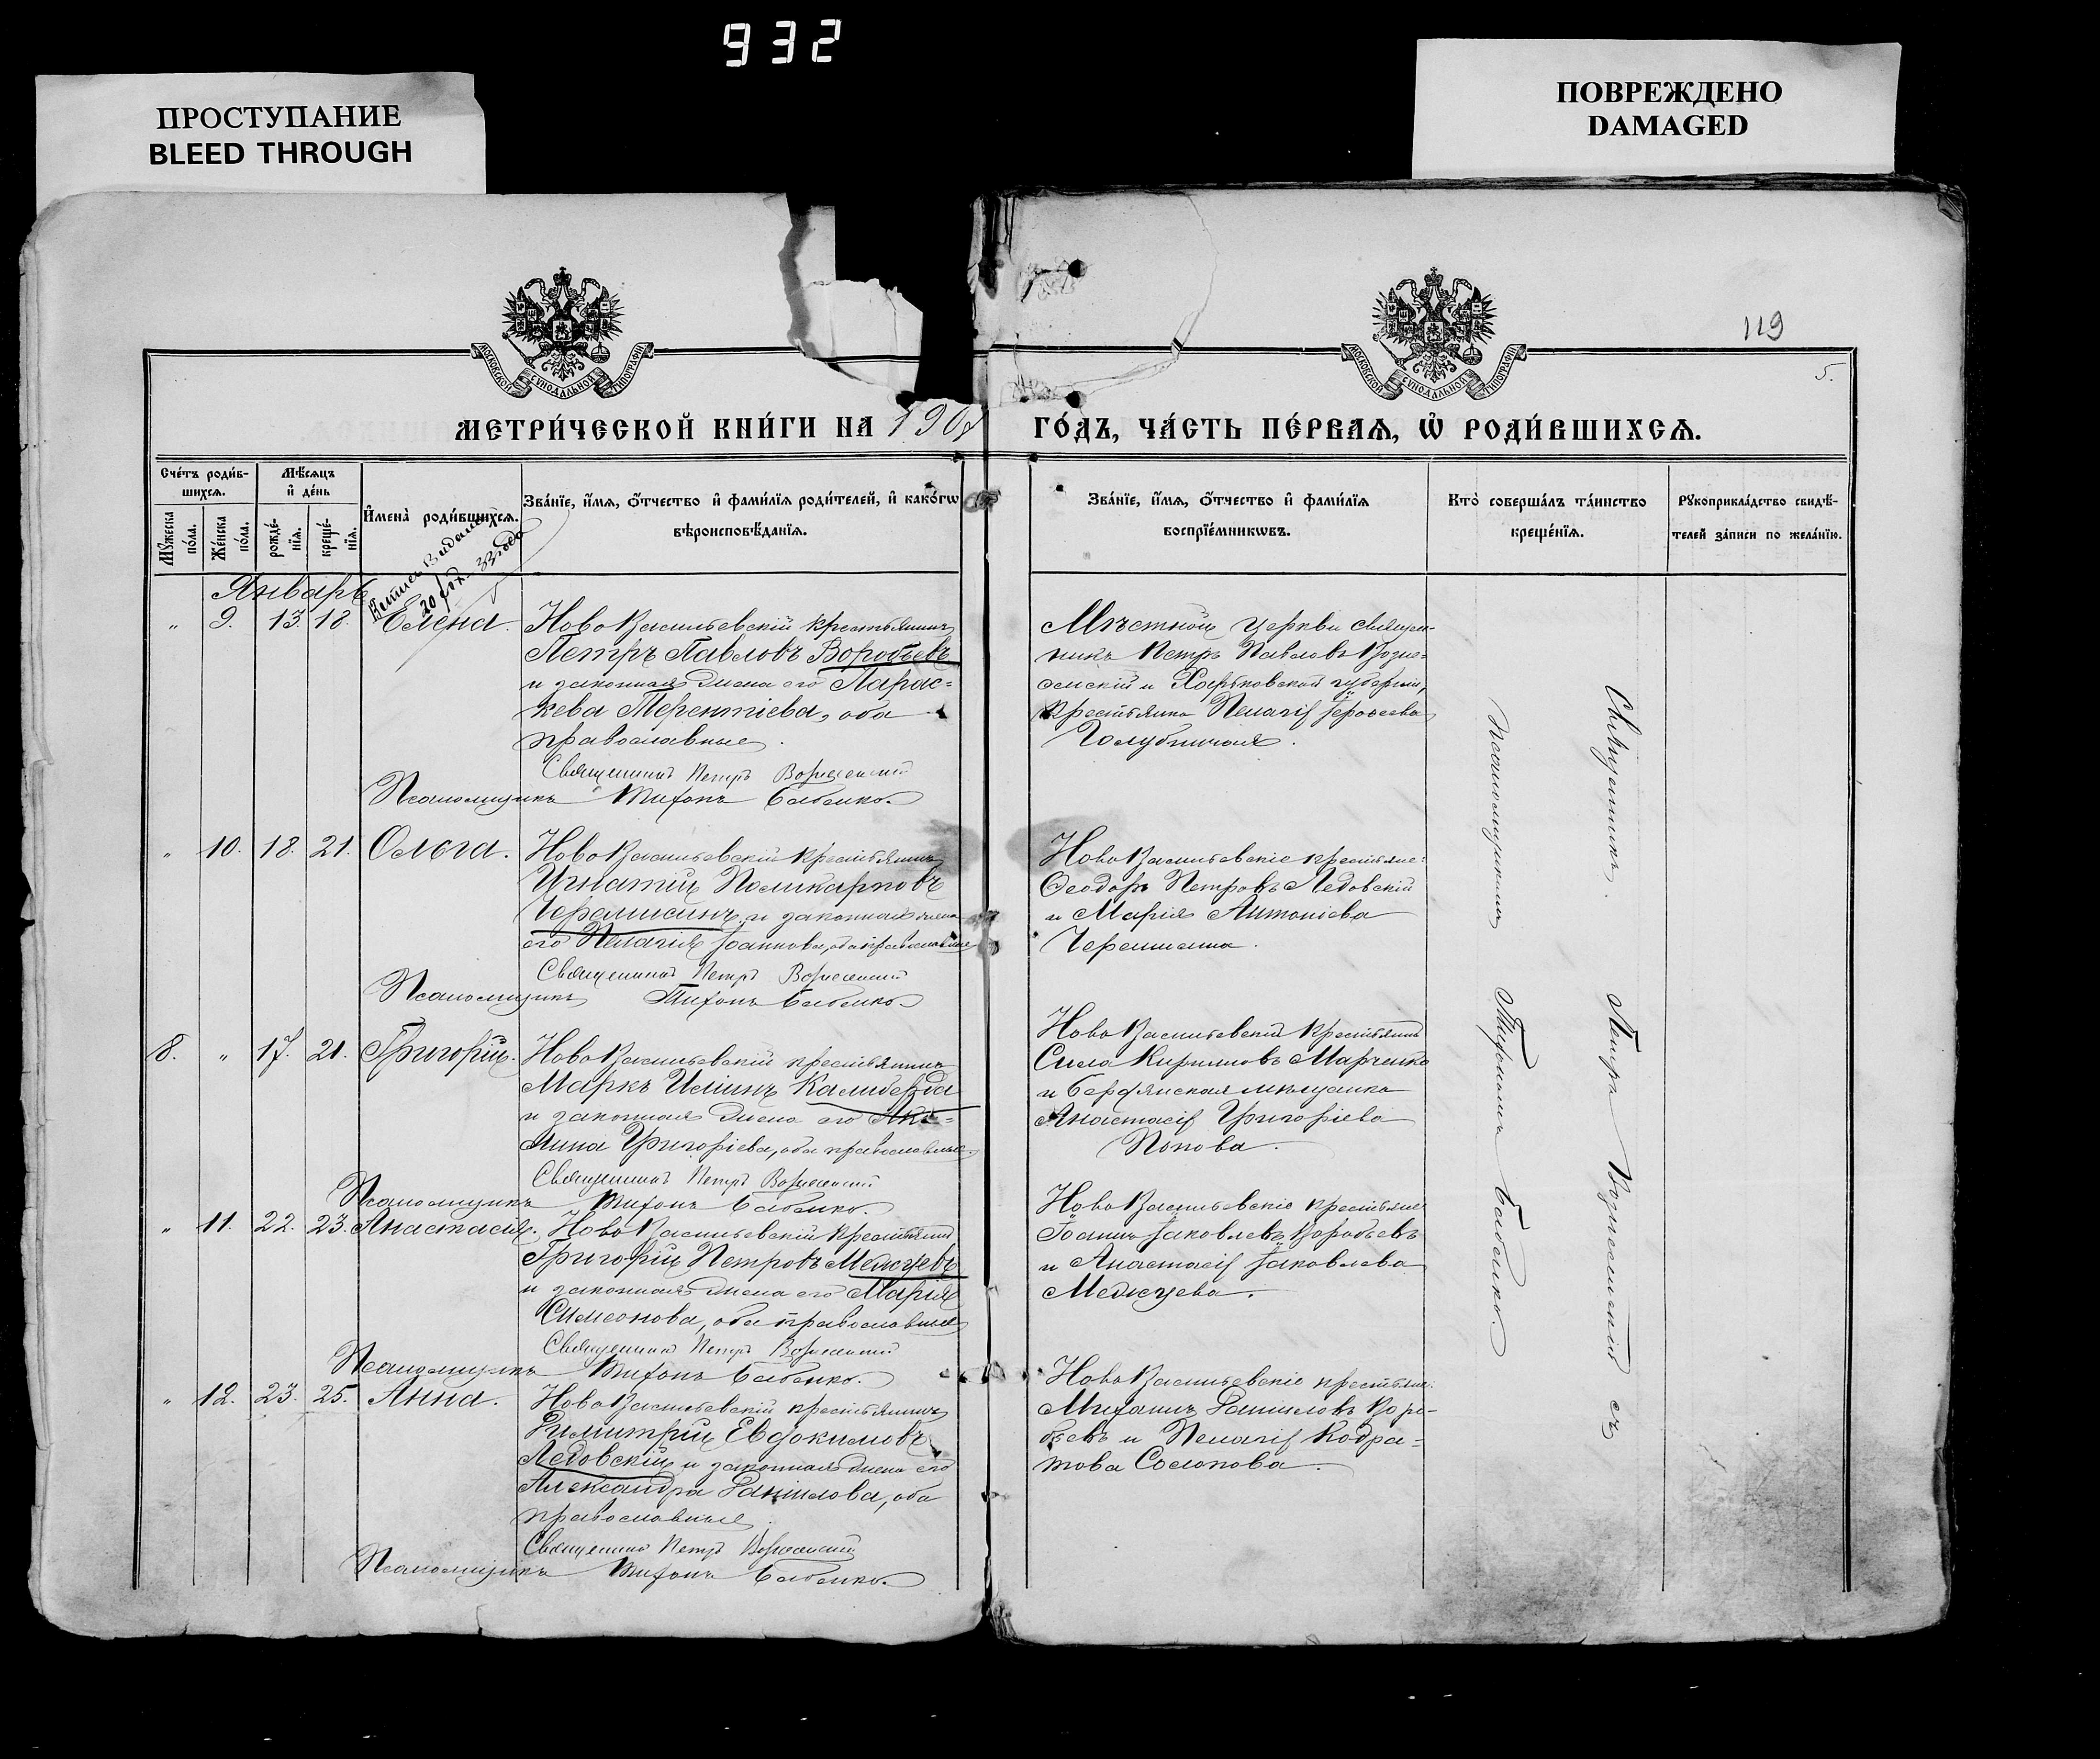 932
ПРОСТУПАНИЕ
BLEED THROUGH
ПОВРЕЖДЕНО
DAMAGED
119
5.
МОСКОВСКОЙ СѴНОДАЛЬНОЙ ТИПОГРАФІИ
МОСКОВСКОЙ СѴНОДАЛЬНОЙ ТИПОГРАФІИ
МЕТРИ́ЧЕСКОЙ КНИ́ГИ НА 190
ГО́ДЪ, ЧА́СТЬ ПЕ́РВАѦ, Ѽ РОДИ́ВШИХСѦ.
Сче́тъ роди́в-
шихсѧ.
Мѣ́сѧцъ
и҆ де́нь
Мꙋ́жеска
по́ла.
Же́нска
по́ла.
рожде́-
нїѧ.
креще́-
нїѧ.
И҆мена̀ роди́вшихсѧ.
Зва́нїе, и҆́мѧ, ѻ҆́тчество и҆ фами́лїѧ роди́телей, и҆ како́гѡ
вѣроисповѣ́данїѧ.
Зва́нїе, и҆́мѧ, ѻ҆́тчество и҆ фами́лїѧ
воспрїе́мникѡвъ.
Кто̀ соверша́лъ та́инство
креще́нїѧ.
Рꙋкоприкла́дство свидѣ́-
телей за́писи по жела́нїю.
Январь
" 9. 13. 18. Елена. НовоВасильевскій крестьянинъ
Петръ Павловъ Воробьевъ
и законная жена его Парас-
кева Терентіева, оба
православные.
Священникъ Петръ Вознесенскій
Псаломщикъ Тихонъ Бабенко.
Мѣстной церкви священ-
никъ Петръ Павловъ Возне-
сенскій и Харьковской губерніи,
крестьянка Пелагія Іероѳеева
Голубничая.
" 10. 18. 21. Ольга. НовоВасильевскій крестьянинъ
Игнатій Поликарповъ
Черемисинъ и законная жена
его Пелагія Іоаннова, оба православные
Священникъ Петръ Вознесенскій
Псаломщикъ Тихонъ Бабенко.
НовоВасильевскіе крестьяне:
Ѳеодоръ Петровъ Ледовскій
и Марія Антоніева
Черемисина.
8. " 17. 21. Григорій. НовоВасильевскій крестьянинъ
Маркъ Ильинъ Калиберда
и законная жена его Аку-
лина Григоріева, оба православные.
Священникъ Петръ Вознесенскій
Псаломщикъ Тихонъ Бабенко.
НовоВасильевскій крестьянинъ
Сила Кирилловъ Марченко
и Бердянская мѣщанка
Анастасія Григоріева
Попова.
" 11. 22. 23. Анастасія. НовоВасильевскій крестьянинъ
Григорій Петровъ Мелюзевъ
и законная жена его Марія
Симеонова, оба православные
Священникъ Петръ Вознесенскій
Псаломщикъ Тихонъ Бабенко.
НовоВасильевскіе крестьяне
Іоаннъ Іаковлевъ Воробьевъ
и Анастасія Іаковлева
" 12. 23. 25. Анна. НовоВасильевскій крестьянинъ
Димитрій Евдокимовъ
Ледовскій и законная жена его
Александра Даниилова, оба
православные.
Священникъ Петръ Вознесенскій
Псаломщикъ Тихонъ Бабенко.
НовоВасильевскіе крестьяне:
Михаилъ Данииловъ Воро-
бьевъ и Пелагія Кодра-
това Солопова.
Священникъ Петръ Вознесенскій съ
псаломщикомъ Тихономъ Бабенко.